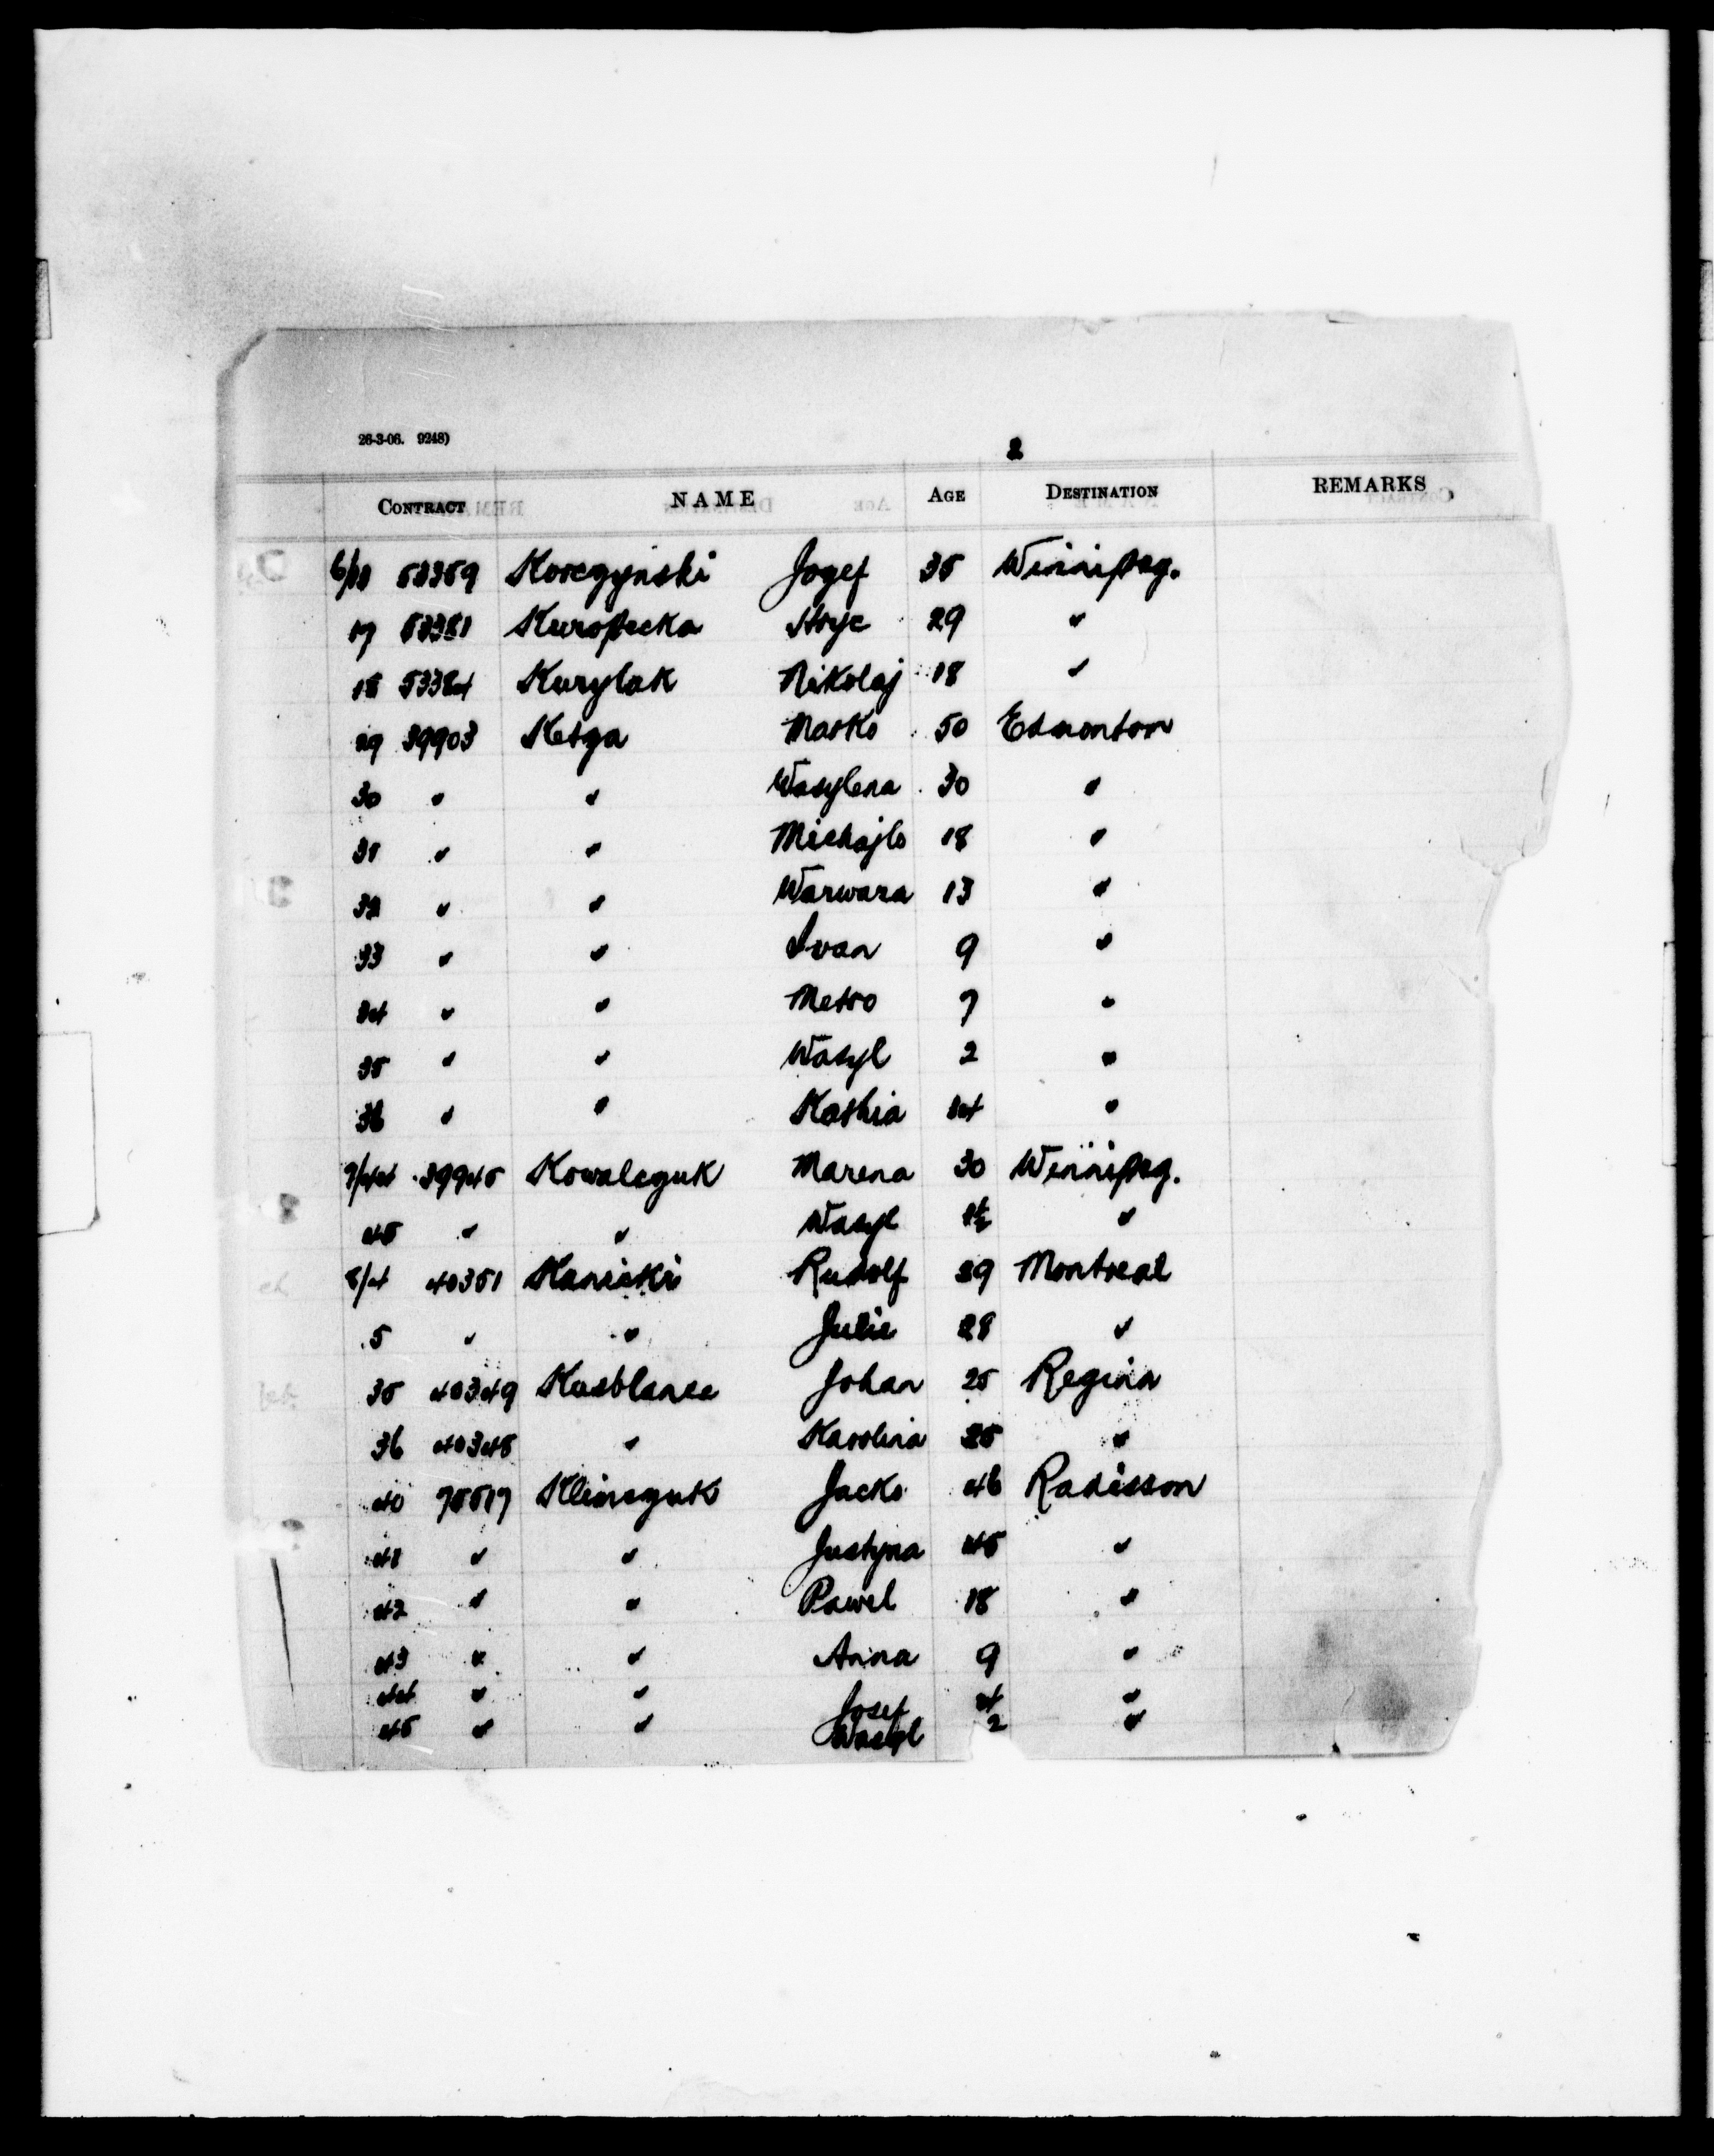 26-3-06. 9248)
2
CONTRACT NAME AGE DESTINATION REMARKS
6/11 53359 Korczynski Jozef 35 Winnipeg.
17 53381 Kuropecka Hryc 29 "
18 53384 Kurylak Nikolaj 18 "
29 39903 Ketza Marko 50 Edmonton
30 " " Wasylena 30 "
31 " " Michajlo 18 "
32 " " Warwara 13 "
33 " " Ivan 9 "
34 " " Metro 7 "
35 " " Wasyl 2 "
36 " " Kashia 14 "
7/44 39945 Kowalczuk Marena 30 Winnipeg.
45 " " Wasyl 1½ "
8/4 40351 Kanicki Rudolf 39 Montreal
5 " " Julie 28 "
35 40349 Johan 25 Regina
36 40348 " Karolina 25 "
40 75517 Klimczuk Jacko 46 Radisson
41 " " Justyna 45 "
42 " " Pawel 18 "
43 " " Anna 9 "
44 " " Josef 4 "
45 " " Wasyl 2 "